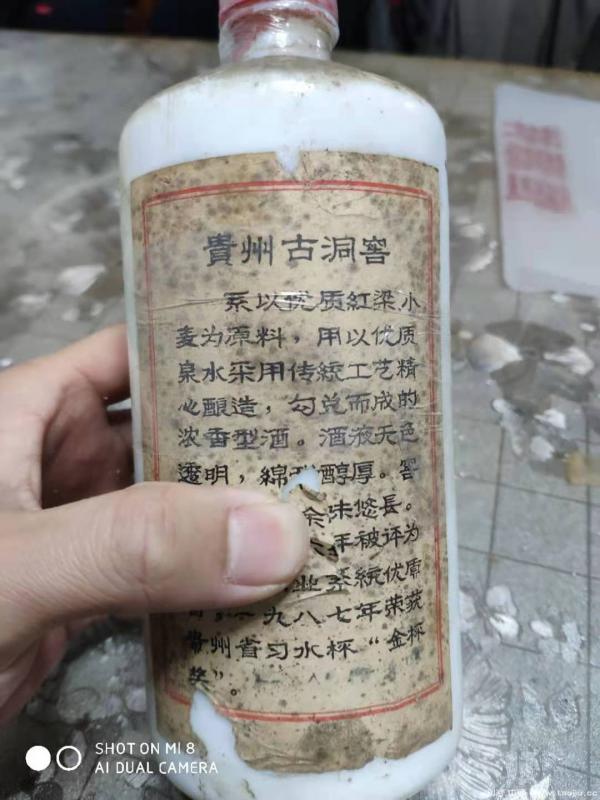 貴州古洞窖
系以优质紅梁小
麦为原料，用以优质
泉水采用传統工艺精
心酿造，勾兑而成的
浓香型酒。酒液无色
透明，綿 醇厚。窖
余味悠長。
年被评为
业系統优质
一九八七年荣获
贵州省习水杯“金杯
奖”。
SHOT ON MI 8
AI DUAL CAMERA